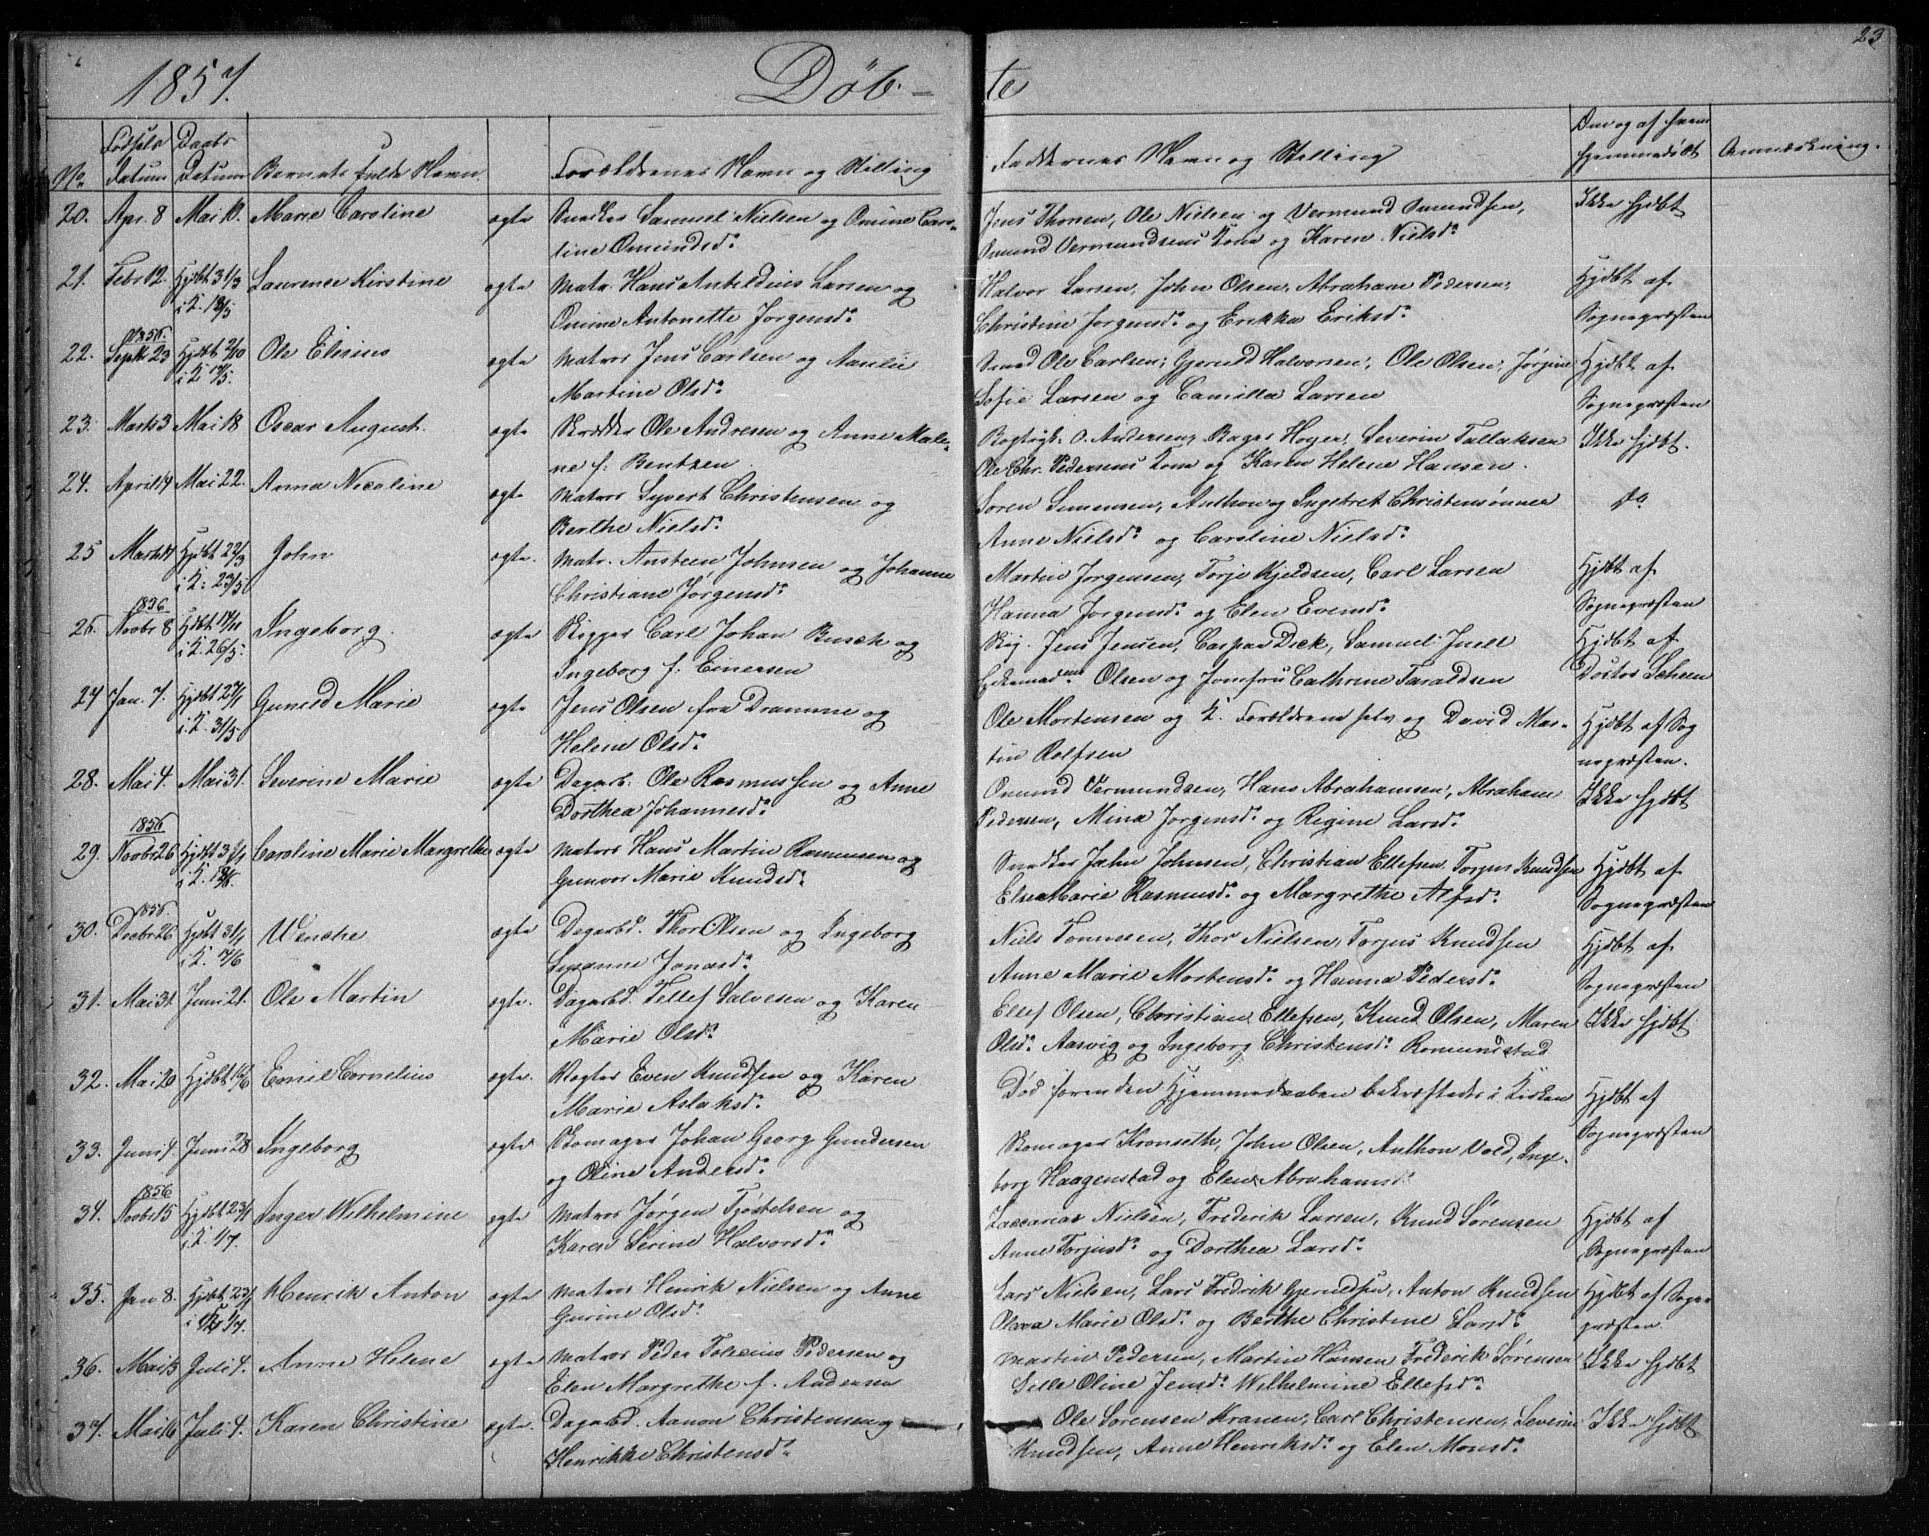 23
1857. Døb- te
No. Fødsels Datum Daabs Datum Barnets fulde Navn. Forældrenes Navn og Stilling Faddernes Navn og Stilling Om og af hvem hjemmedøbt Anmærkning.
20. Apr. 8 Mai 10. Marie Caroline ægte Samuel Nielsen og Omine Caro- Jens Thorsen, Ole Nielsen og Vermund Omundsen, Ikke hjdbt
line Omundsd. Omund Vermundsens Kone og Karen Nielsd.
21. Febr. 12. Hjdbt 31/3 Laurence Kirstine ægte Matr. Hans Anteldius Larsen og Halvor Larsen, John Olsen, Abraham Pedersen, Hjdbt af
i K. 18/5 Omine Antonette Jørgensd. Christine Jørgensd. og Erikka Eriksd. Sognepræsten
22. 1856. Septb. 23 Hjdbt 2/10 Ole Elenius ægte Matros Jens Carlsen og Aanlie Smed Ole Carlsen, Gjeruld Halvorsen, Ole Olsen, Jørgine Hjdbt af
i K 17/5. Martine Olsd. Sofie Larsen og Camilla Larsen Sognepræsten
23. Marts 3 Mai 18 Oscar August. ægte Skrædder Ole Andresen og Anne Male- Bogtryk. O. Andersen, Bager Høyer, Severin Tallaksen Ikke hjdbt.
ne f. Bentzen Ole Chr. Pedersens Kone og Karen Helene Hansen.
24. April 14 Mai 22. Anna Nicoline ægte Matros Syvert Christensen og Søren Simensen, Anthon og Ingebret Christensønner do
Berthe Nielsd. Anne Nielsd. og Caroline Nielsd.
25 Marts 14 Hjdbt 22/3 John ægte. Matr. Ansteen Johnsen og Johanne Martin Jørgensen, Torje Kjeldsen, Carl Larsen Hjdbt af
i K. 23/5 Christiane Jørgensd. Hanna Jørgensd. og Elen Evensd. Sognepræsten
26. 1856 Novbr 8 Hjdbt 17/11 Ingeborg. ægte Skipper Carl Johan Busch og Skip. Jens Jensen, Casper Dick, Samuel Juell Hjdbt af
i K. 26/5. Ingeborg f. Einersen Olsen og Jomfru Cathrine Taraldsen Doctor Scheen
27 Jan. 7. Hjdbt 27/1 Gunild Marie ægte Jens Olsen fra Dramme og Ole Mortensen og K. Forældrene selv og David Mar- Hjdbt af Sog
i K. 31/5 Helene Olsd. tin Rolfsen nepræsten.
28. Mai 4. Mai 31. Severine Marie ægte Dagarb. Ole Rasmussen og Anne Omund Vermundsen, Hans Abrahamsen, Abraham Ikke hjdbt
Dorthea Johannesd. Pedersen, Mina Jørgensd. og Regine Larsd.
29. 1856 Novbr 26 Hjdbt 3/1 Caroline Marie Margrethe ægte Matros Hans Martin Rasmusen og Snedker John Johnsen, Christian Ellefsen, Torjus Knudsen Hjdbt af
Gunvor Marie Knudsd. Else Marie Rasmusd. og Margrethe Alfsd. Sognepræsten
30. 1856. Decbr 26 Hjdbt 31/1 Wenche ægte Dagarbd. Thor Olsen og Ingeborg Niels Tønnesen, Thor Nielsen, Torjus Knudsen Hjdbt af
i K. 14/6 Susanne Jonasd. Anne Marie Mortensd. og Hanna Pedersd. Sognepræsten
31. Mai 31. Juni 21. Ole Martin ægte. Dagarbd. Tellef Salvesen og Karen Ellef Olsen, Christian Ellefsen, Knud Olsen, Maren Ikke hjdbt.
Marie Olsd. Olsd. Aasvig og Ingeborg Christensd. Romundstad
32. Mai 20 Hjdbt 16/6 Emil Cornelius ægte. Røgter Even Knudsen og Karen Død førenden Hjemmedaaben bekræftedes i Kirken Hjdbt af
Marie Aslaksd. Sognepræsten
33. Juni 4 Juni 28 Ingeborg ægte Skomager Johan Georg Gundersen Skomager Kronseth, John Olsen, Anthon Vold, Inge-
og Oline Andersd. borg Haagenstad og Elen Abrahamsd.
34. 1856 Novbr 15 Hjdbt 23/1 Inger Wilhelmine ægte Matros Jørgen Tjøstelsen og Zaccarias Nielsen, Frederik Larsen, Knud Sørensen Hjdbt af
i K. 1/7. Karen Serine Halvorsd. Anne Torjusd. og Dorthea Larsd. Sognepræsten
35. Jan 8. Hjdbt 23/1 Henrik Anton ægte Matros Henrik Nielsen og Anne Lars Nielsen, Lars Fredrik Gjerulsen, Anton Knudsen Hjdbt af Sogne-
i K 1/7. Gurine Olsd. Olava Marie Olsd. og Berthe Christine Larsd. præsten.
36. Mai 5 Juli 4. Anne Helene ægte Matros Peder Tobias Pedersen og Martin Pedersen, Martin Hansen Frederik Sørensen Ikke hjdbt
Elen Margrethe f. Andersen Sille Oline Jensd. Wilhelmine Ellefsd.
37. Mai 16 Juli 4. Karen Christine ægte. Dagarbd. Aanon Christensen og Ole Sørensen Kranen, Carl Christensen, Severin Ikke hjdbt
Henrikke Christensd. Knudsen, Anne Henriksd. og Elen Monsd.